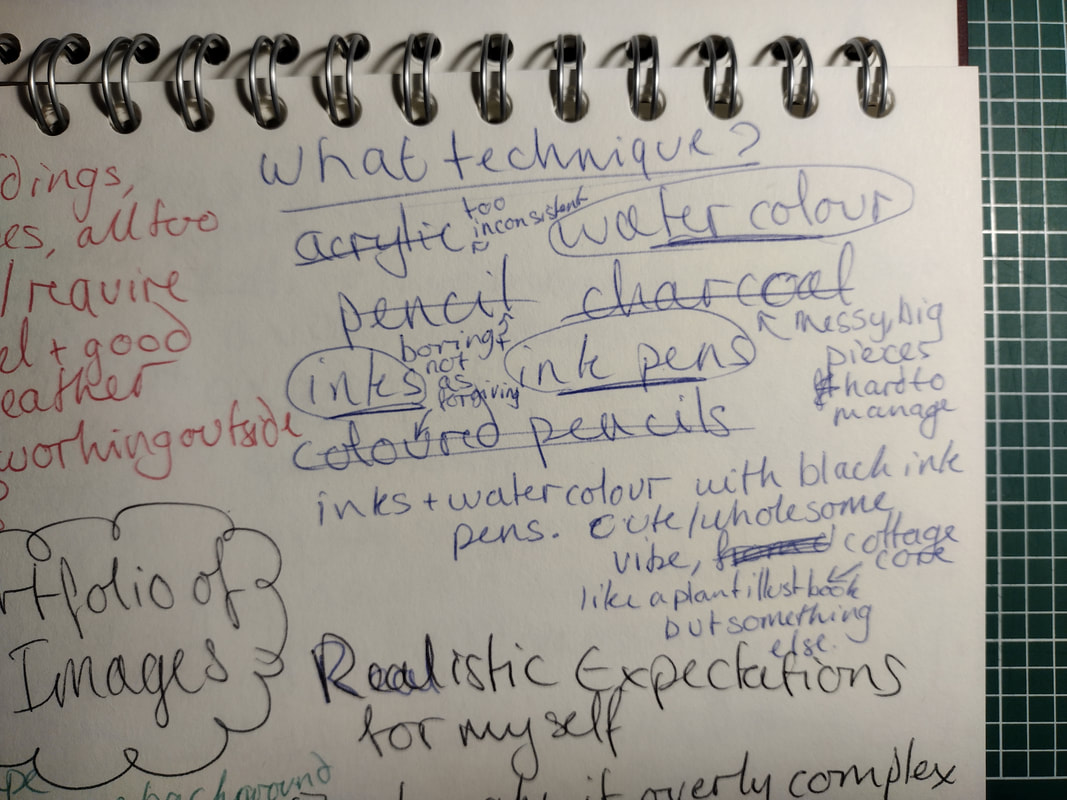 dings,
es, all too
/ require
el + good
eather
working outside
What technique?
acrylic too inconsistent water colour
pencil charcoal
boring + not as forgiving
messy, big pieces
hard to manage
inks ink pens
coloured pencils
inks + watercolour with black ink
pens. Cute/wholesome
vibe, cottage core
like a plant illust book
but something
else.
rtfolio of
Images
Realistic Expectations
for myself
background
it overly complex